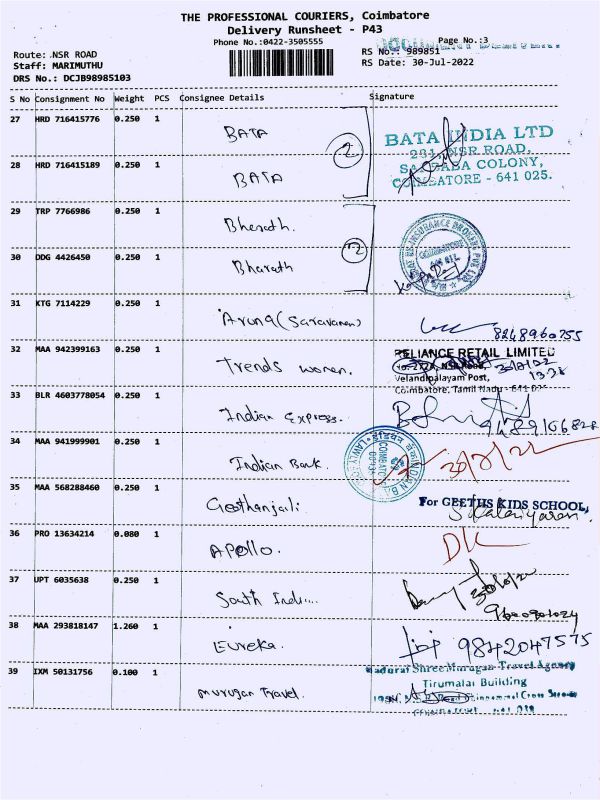 THE PROFESSIONAL COURIERS, Coimbatore
Delivery Runsheet - P43
Phone No.:0422-3505555
Page No.:3
Route: NSR ROAD
RS No.: 989851
Staff: MARIMUTHU
RS Date: 30-Jul-2022
DRS No.: DCJB98985103
S No Consignment No Weight PCS Consignee Details Signature
27 HRD 716415776 0.250 1 BATA
2
BATA INDIA LTD
NSR ROAD,
COLONY,
COIMBATORE - 641 025.
28 HRD 716415189 0.250 1 BATA
29 TRP 7766986 0.250 1 Bharath.
2
30 DDG 4426450 0.250 1 Bharath
31 KTG 7114229 0.250 1 Aruna (Saravanan) 8248960755
32 MAA 942399163 0.250 1 Trends women.
RELIANCE RETAIL LIMITED
Velandipalayam Post,
Coimbatore, Tamil Nadu - 641 025
33 BLR 4603778054 0.250 1 Indian Express.
34 MAA 941999901 0.250 1 Indian Bank. 30/7/22
35 MAA 568288460 0.250 1 Geethanjali
For GEETHS KIDS SCHOOL,
36 PRO 13634214 0.080 1 APOLLO.
37 UPT 6035638 0.250 1 South Indi....
9600901024
38 MAA 293818147 1.260 1 Eureka. 9842047575
39 IXM 50131756 0.100 1 Murugan Travel.
Madurai Shree Murugan Travel Agency
Tirumalai Building
Cross Street